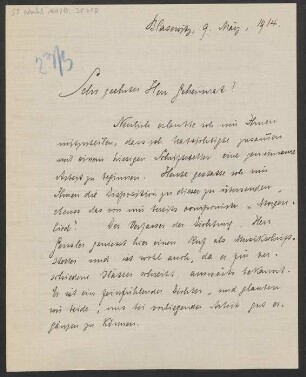 Blasewitz, 9. März, 1914.
23/3
Sehr geehrter Herr Geheimrat!
Neulich erlaubte ich mir Ihnen
mitzuteilen, dass ich beabsichtigte zusammen
mit einem hiesigen Schriftsteller eine gemeinsame
Arbeit zu beginnen. Heute gestatte ich mir
Ihnen die Disposition zu dieser zu übersenden,
ebenso das von mir bereits componierte "Morgen-
lied". Der Verfasser der Dichtung, Herr
geniesst hier einen Ruf als Musikschrift-
steller und ist wohl auch, da er für ver-
schiedene Blätter schreibt, auswärts bekannt.
Er ist ein feinfühlender Dichter, und glauben
wir beide, uns bei vorliegender Arbeit gut er-
gänzen zu können.